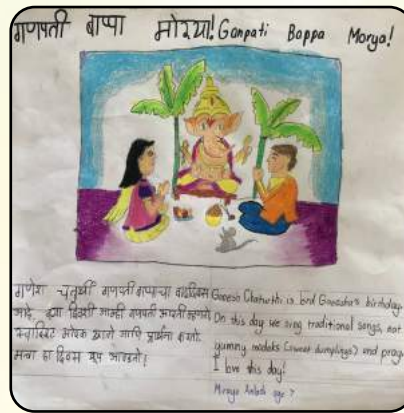 गणपती बाप्पा मोरया! Ganpati Bappa Morya!
गणेश चतुर्थी गणपती बाप्पाचा वाढदिवस
आहे. ह्या दिवशी आम्ही गणपती आरती म्हणतो
स्वादिष्ट मोदक खातो आणि प्रार्थना करतो.
मला हा दिवस खूप आवडतो!
Ganesh Chaturthi is lord Ganesha's birthday.
On this day we sing traditional songs, eat
yummy modaks (sweet dumplings) and pray.
I love this day!
age 7